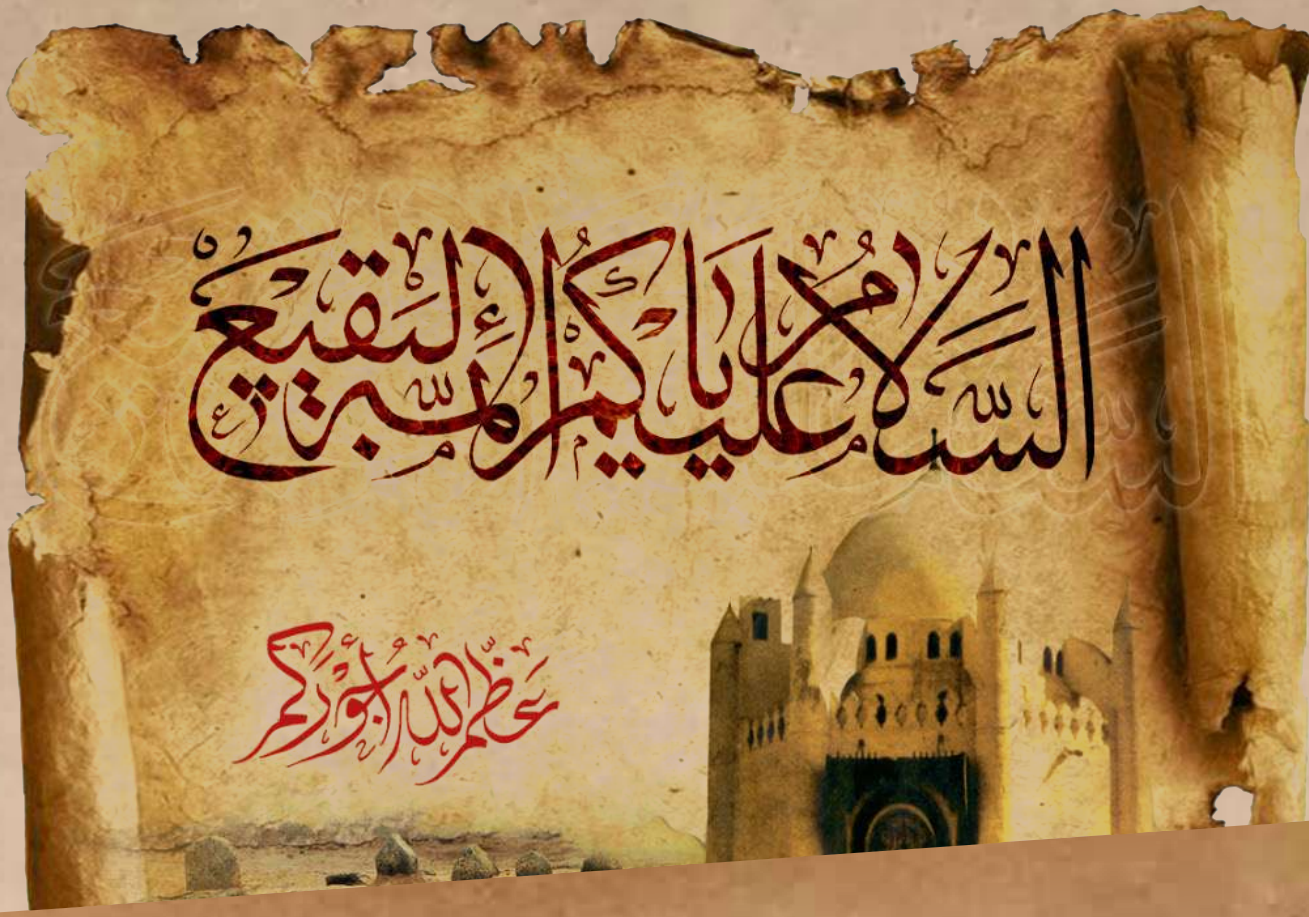 السَّلَامُ عَلَيْكُم يَا أَئِمَّةَ الْبَقِيعِ
عَظَّمَ اللّٰهُ أُجُورَكُم